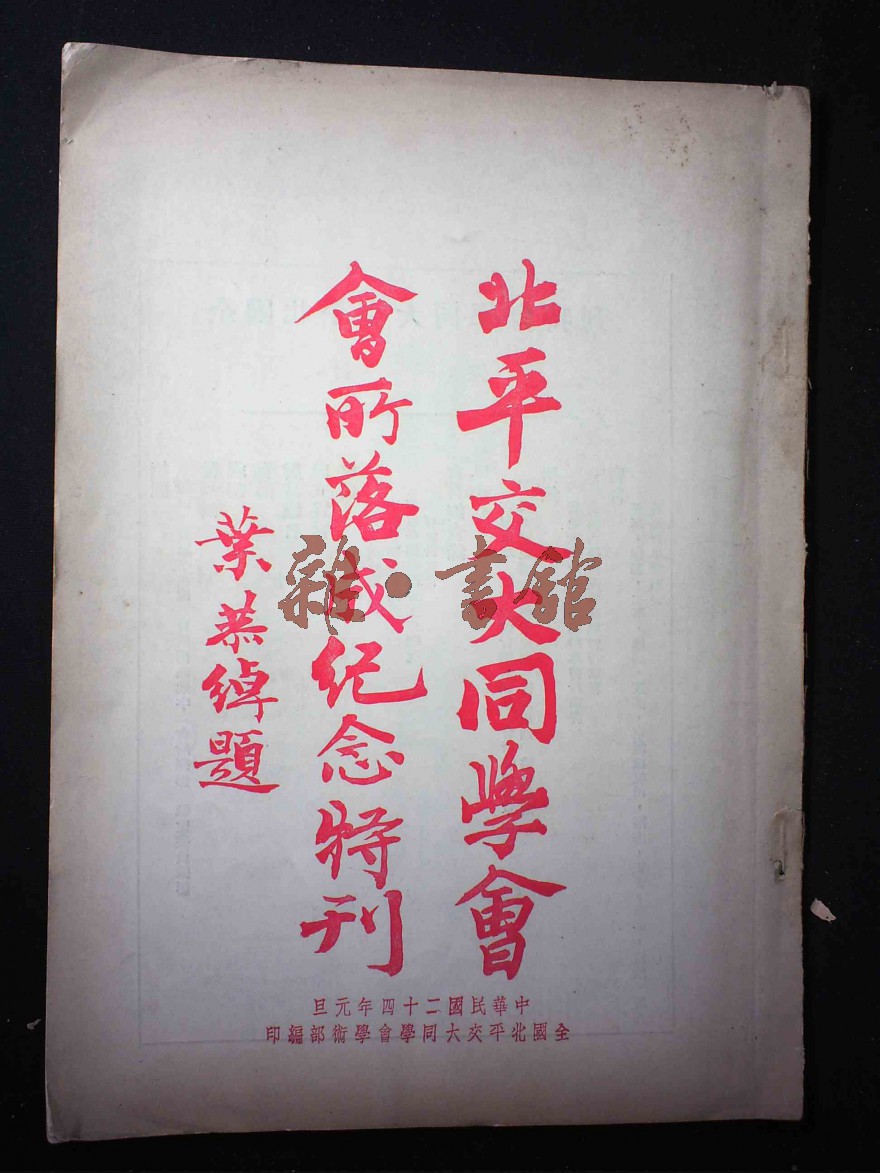 北平交大同學會
會所落成紀念特刊
葉恭綽題
雜·書館
中華民國二十四年元旦
全國北平交大同學會學術部編印